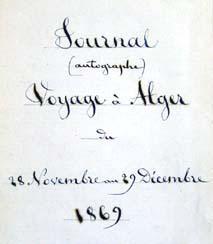 Journal
(autographe)
Voyage à Alger
du
28. Novembre au 29 Décembre
1869